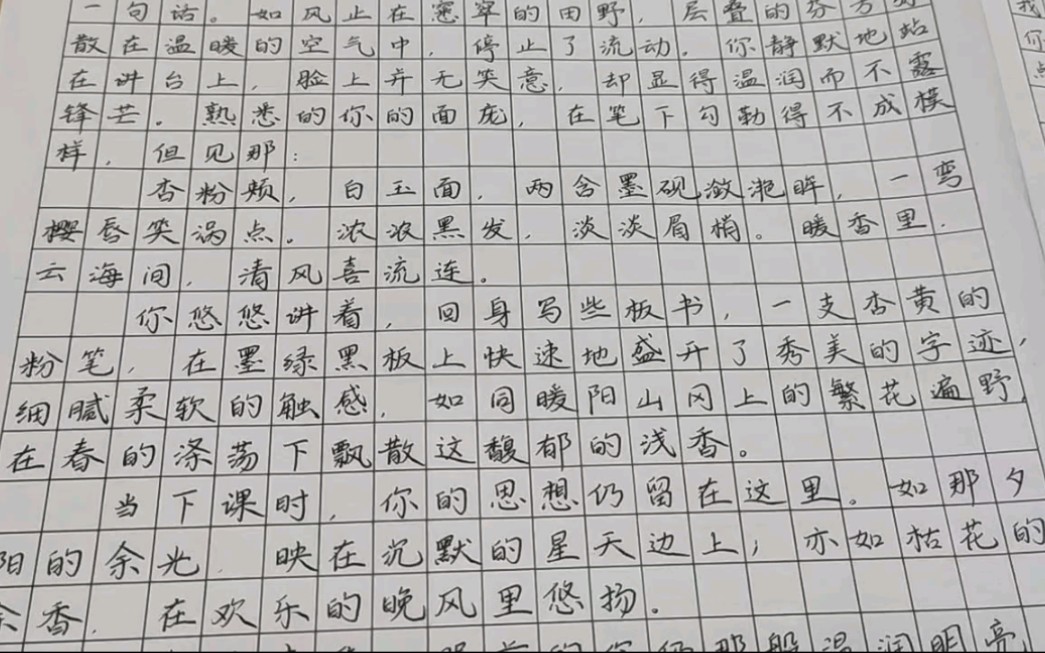 一句话。如风止在窒窣的田野，层叠的芬芳
散在温暖的空气中，停止了流动。你静默地站
在讲台上，脸上并无笑意，却显得温润而不露
锋芒。熟悉的你的面庞，在笔下勾勒得不成模
样，但见那：
杏粉颊，白玉面，两含墨砚潋滟眸，一弯
樱唇笑涡点。浓浓黑发，淡淡眉梢。暖香里，
云海间，清风喜流连。
你悠悠讲着，回身写些板书，一支杏黄的
粉笔，在墨绿黑板上快速地盛开了秀美的字迹，
细腻柔软的触感，如同暖阳山冈上的繁花遍野，
在春的涤荡下飘散这馥郁的浅香。
当下课时，你的思想仍留在这里。如那夕
阳的余光，映在沉默的星天边上；亦如枯花的
余香，在欢乐的晚风里悠扬。
你仍那般温润明亮
我
你
点